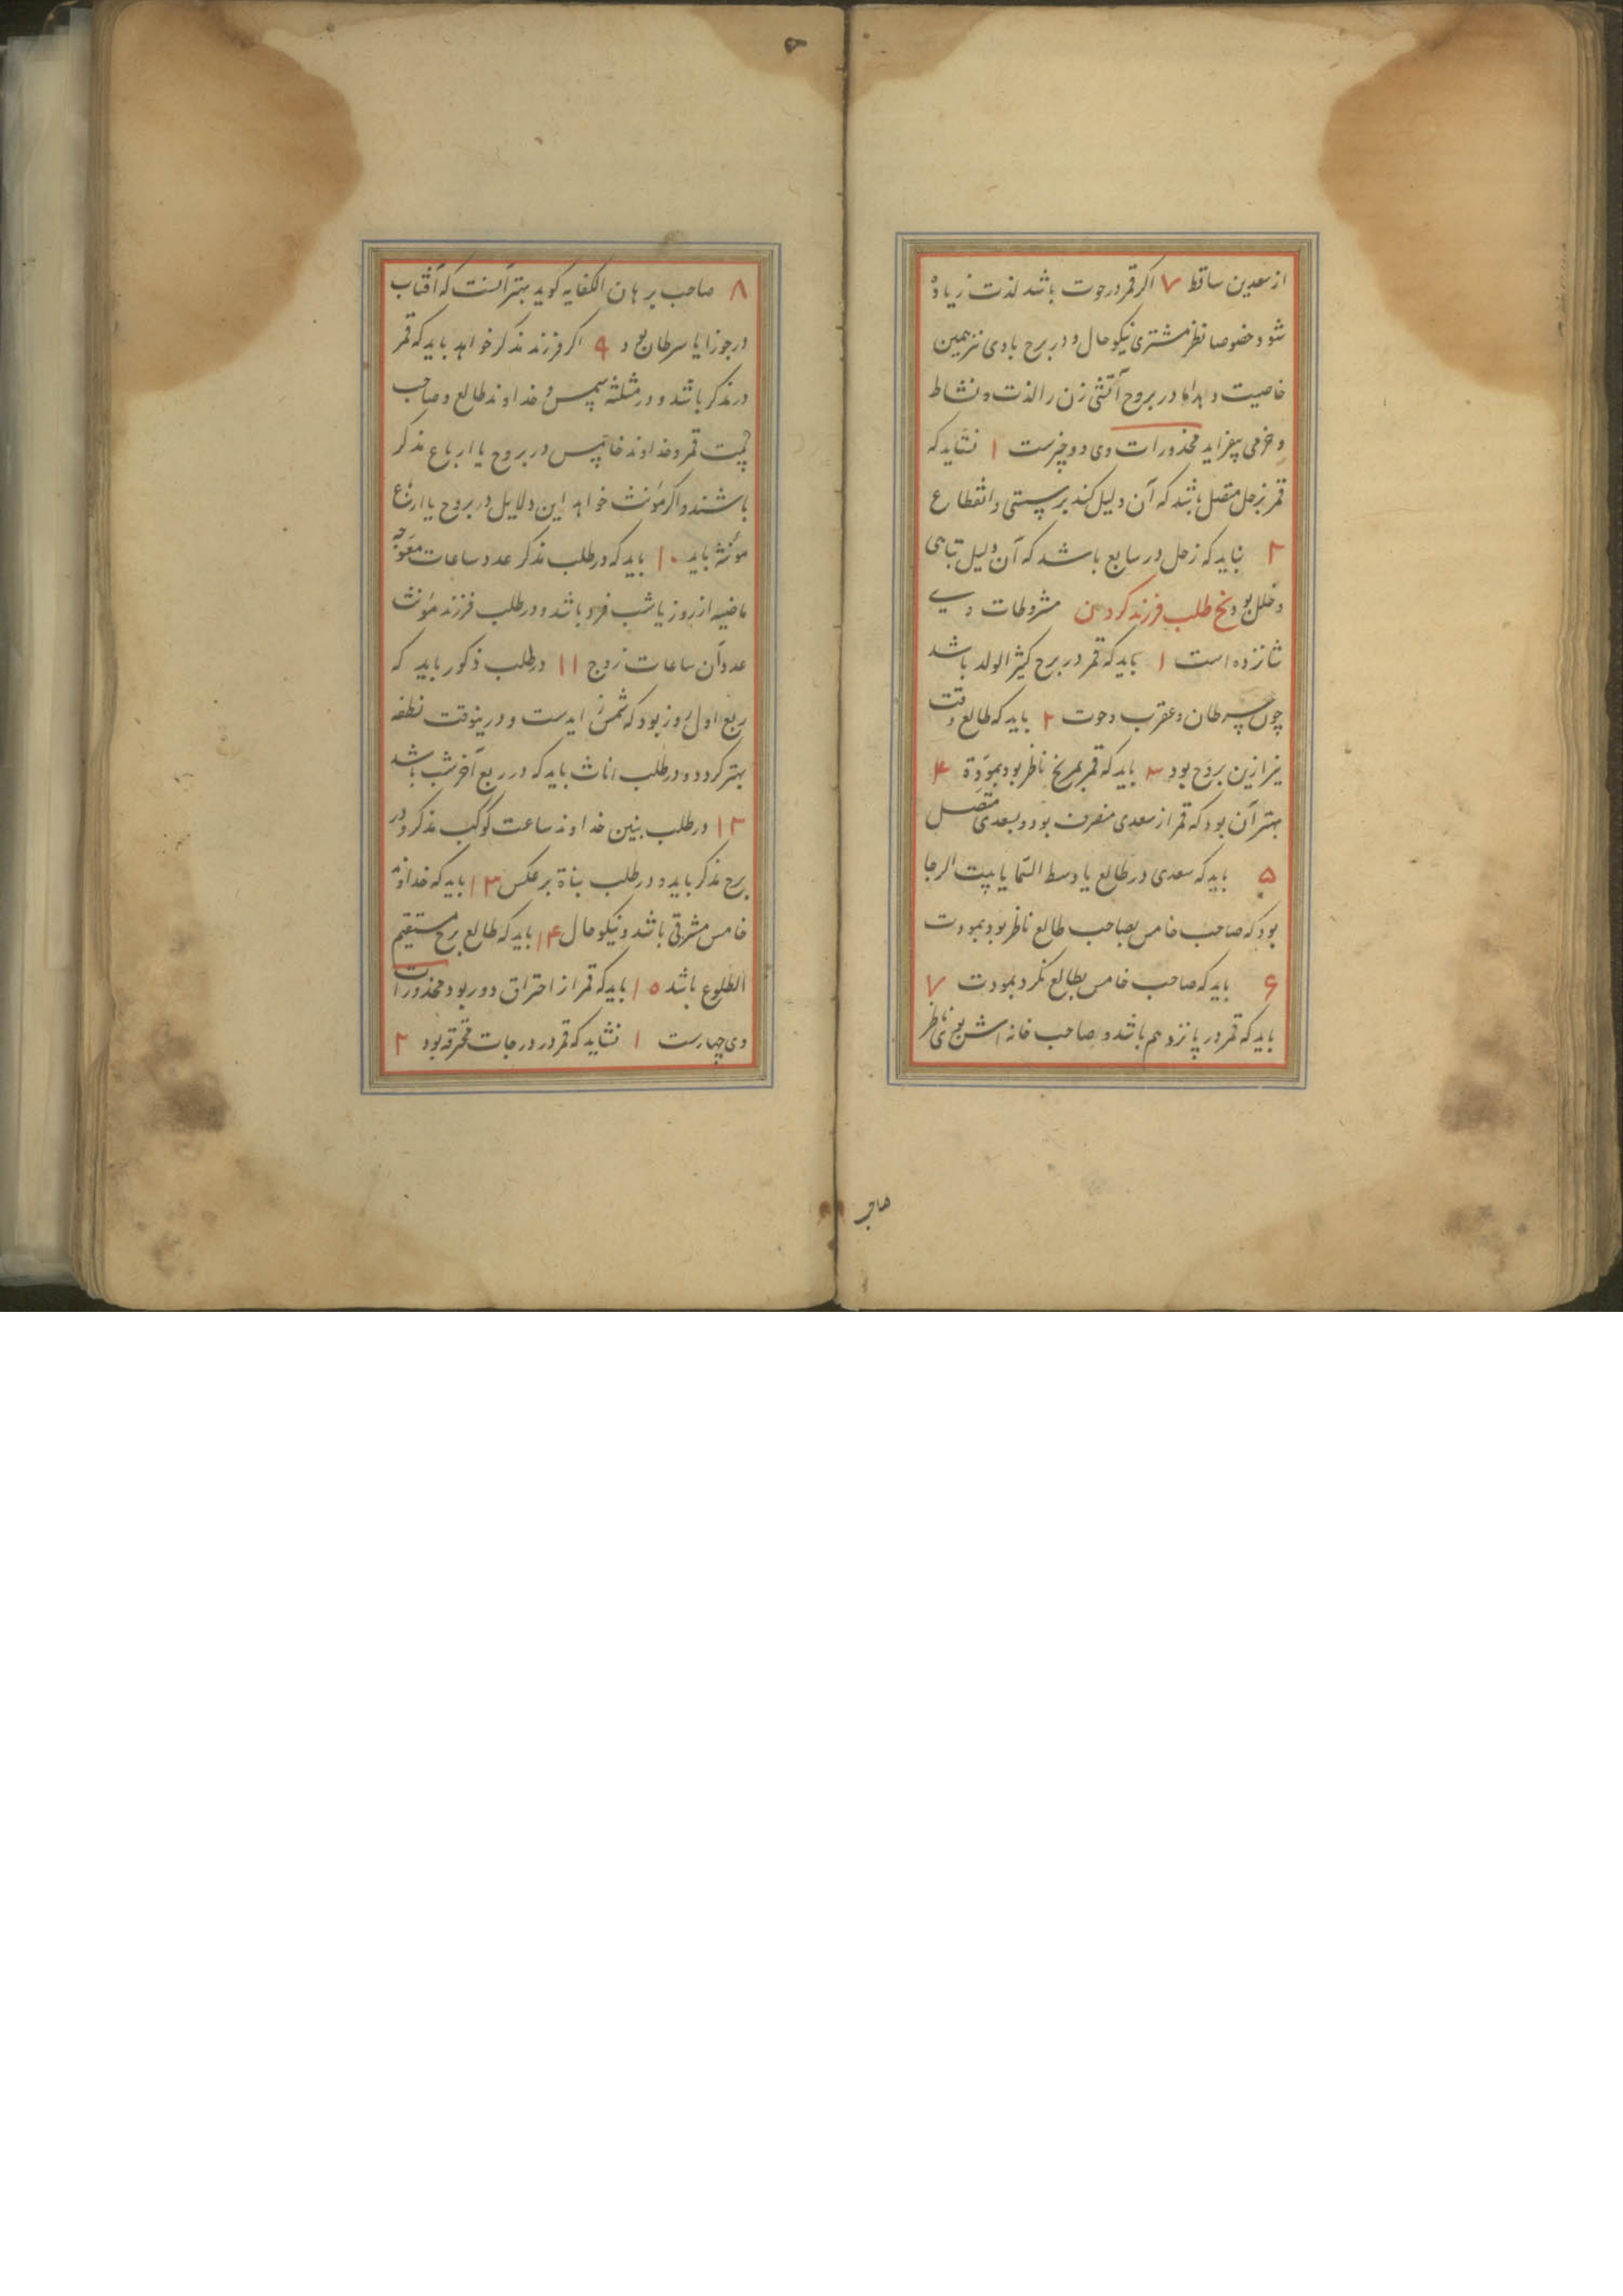 از سعدین ساقط ۷ اکر قمر در حوت باشد لذت زیاده
شود خصوصا نظر مشتری نیکو حال و در برج بادی نیز همین
خاصیت دهد اما در بروج آتشی زن را لذت و نشاط
و خرمی بیفزاید محذورات وی دو چیزست ۱ نشاید که
قمر بزحل متصل باشد که آن دلیل کند بر سستی و انقطاع
۲ نباید که زحل در سابع باشد که آن دلیل تباهی
و خلل بود طلب فرزند کردن مشروطات وی
شانزده است ۱ باید که قمر در برج کثیر الولد باشد
چون سرطان و عقرب و حوت ۲ باید که طالع وقت
نیز ازین بروج بود ۳ باید که قمر بمریخ ناظر بود بمودة ۴
بهتر آن بود که قمر از سعدی منصرف بود و بسعدی متصل
۵ باید که سعدی در طالع یا وسط السما یا بیت الرجا
بود که صاحب خامس بصاحب طالع ناظر بود بمودت
۶ باید که صاحب خامس بطالع نکرد بمودت ۷
باید که قمر در پانزدهم باشد و صاحب خانه اش بوی ناظر
صاحب
۸ صاحب برهان الکفایه کوید بهتر آنست که آفتاب
در جوزا یا سرطان بود ۹ اکر فرزند مذکر خواهد باید که قمر
در مذکر باشد و در مثلثه شمس و خداوند طالع و صاحب
بیت قمر و خداوند خامس در بروج یا ارباع مذکر
باشند و اکر مؤنث خواهد این دلایل در بروج یا ارباع
مؤنثه باید ۱۰ باید که در طلب مذکر عدد ساعات معوجه
ماضیه از روز یا شب فرد باشد و در طلب فرزند مؤنث
عدد آن ساعات زوج ۱۱ در طلب ذکور باید که
ربع اول روز بود که شمس زایدست و درینوقت نطفه
بهتر کردد و در طلب اناث باید که در ربع آخر شب باشد
۱۲ در طلب بنین خداوند ساعت کوکب مذکر و در
برج مذکر باید و در طلب بناة برعکس ۱۳ باید که خداوند
خامس مشرقی باشد و نیکو حال ۱۴ باید که طالع برج مستقیم
الطلوع باشد ۱۵ باید که قمر از احتراق دور بود محذورات
وی چهارست ۱ نشاید که قمر در درجات محترقه بود ۲